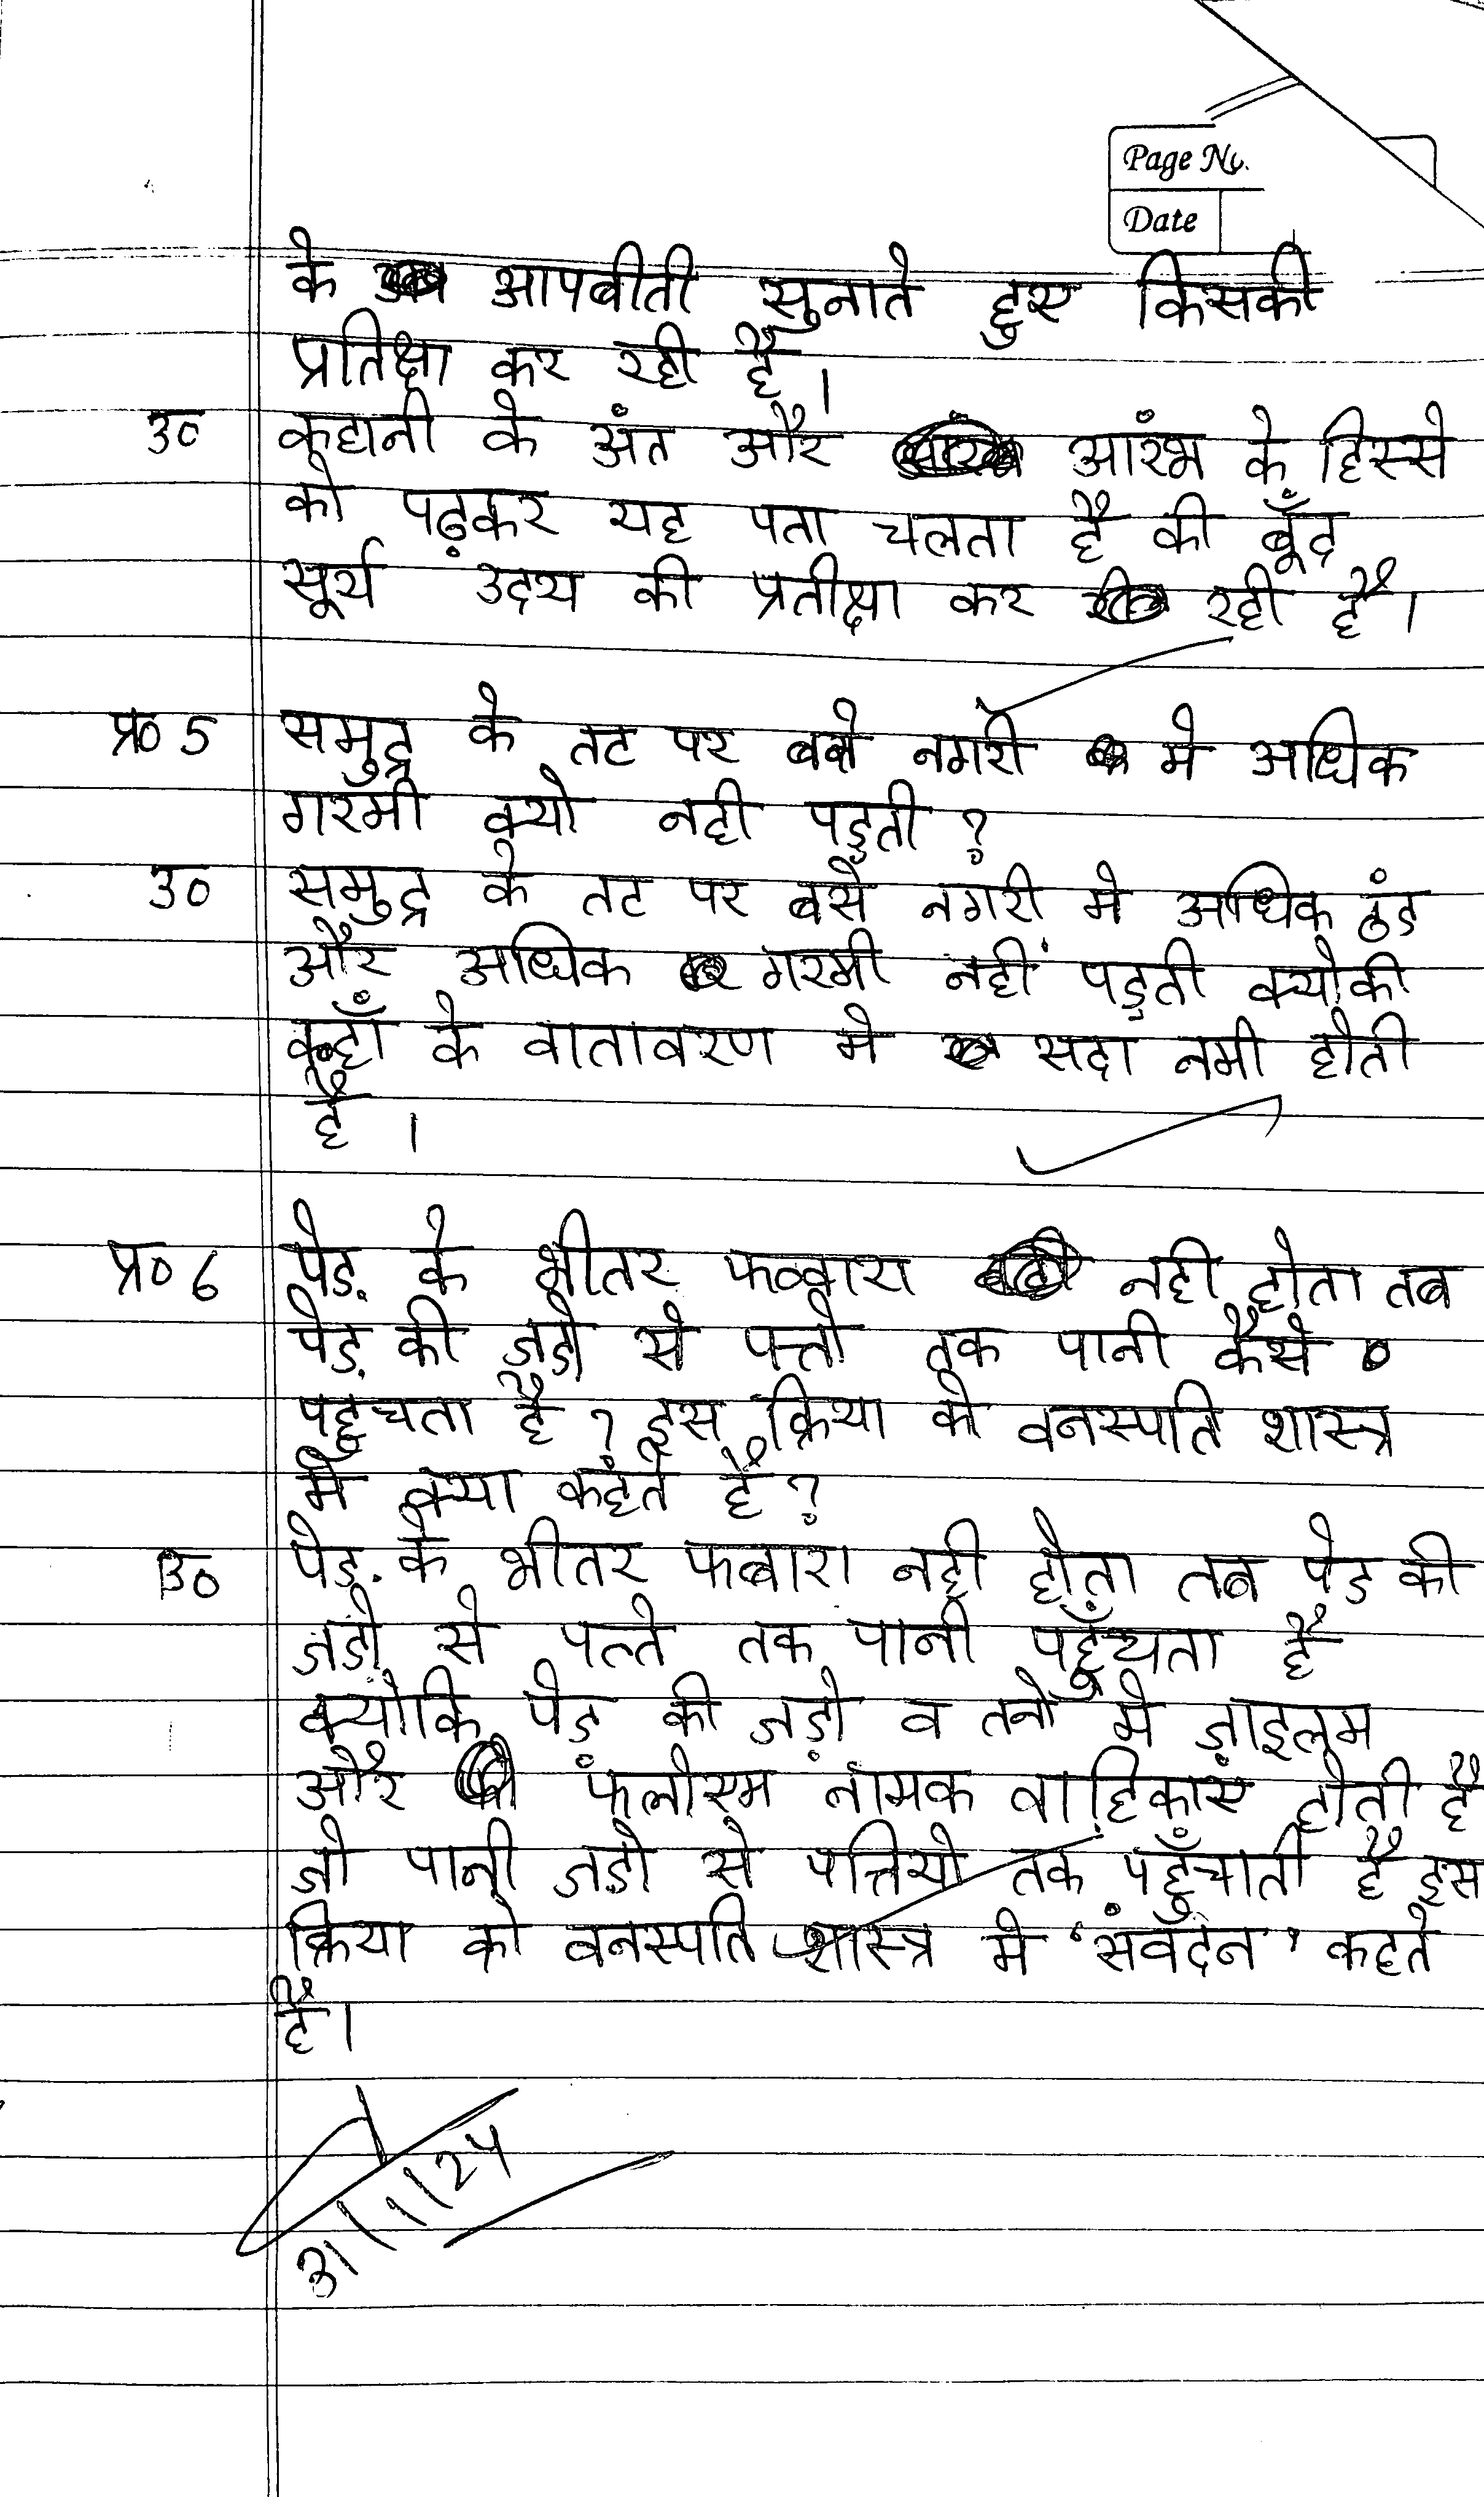 Page No.
Date
के आपबीती सुनाते हुए किसकी
प्रतिक्षा कर रही है।
उ० कहानी के अंत और आरंभ के हिस्से
को पढ़कर यह पता चलता है की बूँद
सूर्य उदय की प्रतीक्षा कर रही है।
प्र० 5 समुद्र के तट पर बसे नगरो मे अधिक
गरमी क्यो नही पड़ती ?
उ० समुद्र के तट पर बसे नगरो मे अधिक ठंड
और अधिक गरमी नहीं पड़ती क्योकी
वहाँ के वातावरण मे सदा नमी होती
है ।
प्र० 6 पेड़ के भीतर फव्वारा नही होता तब
पेड़ की जड़ो से पत्तो तक पानी कैसे
पहुचता है ? इस क्रिया को वनस्पति शास्त्र
मे क्या कहते है ?
उ० पेड़ के भीतर फब्बारा नही होता तब पेड की
जडो से पत्ते तक पानी पहुँचता है
क्योकि पेड की जड़ो व तनो मे ज़ाइलम
और फ्लोएम नामक वाहिकाएं होती है
जो पानी जडो से पत्तियो तक पहुँचाती है इस
क्रिया को वनस्पति शास्त्र मे 'संवदन' कहते
है।
31/1/24